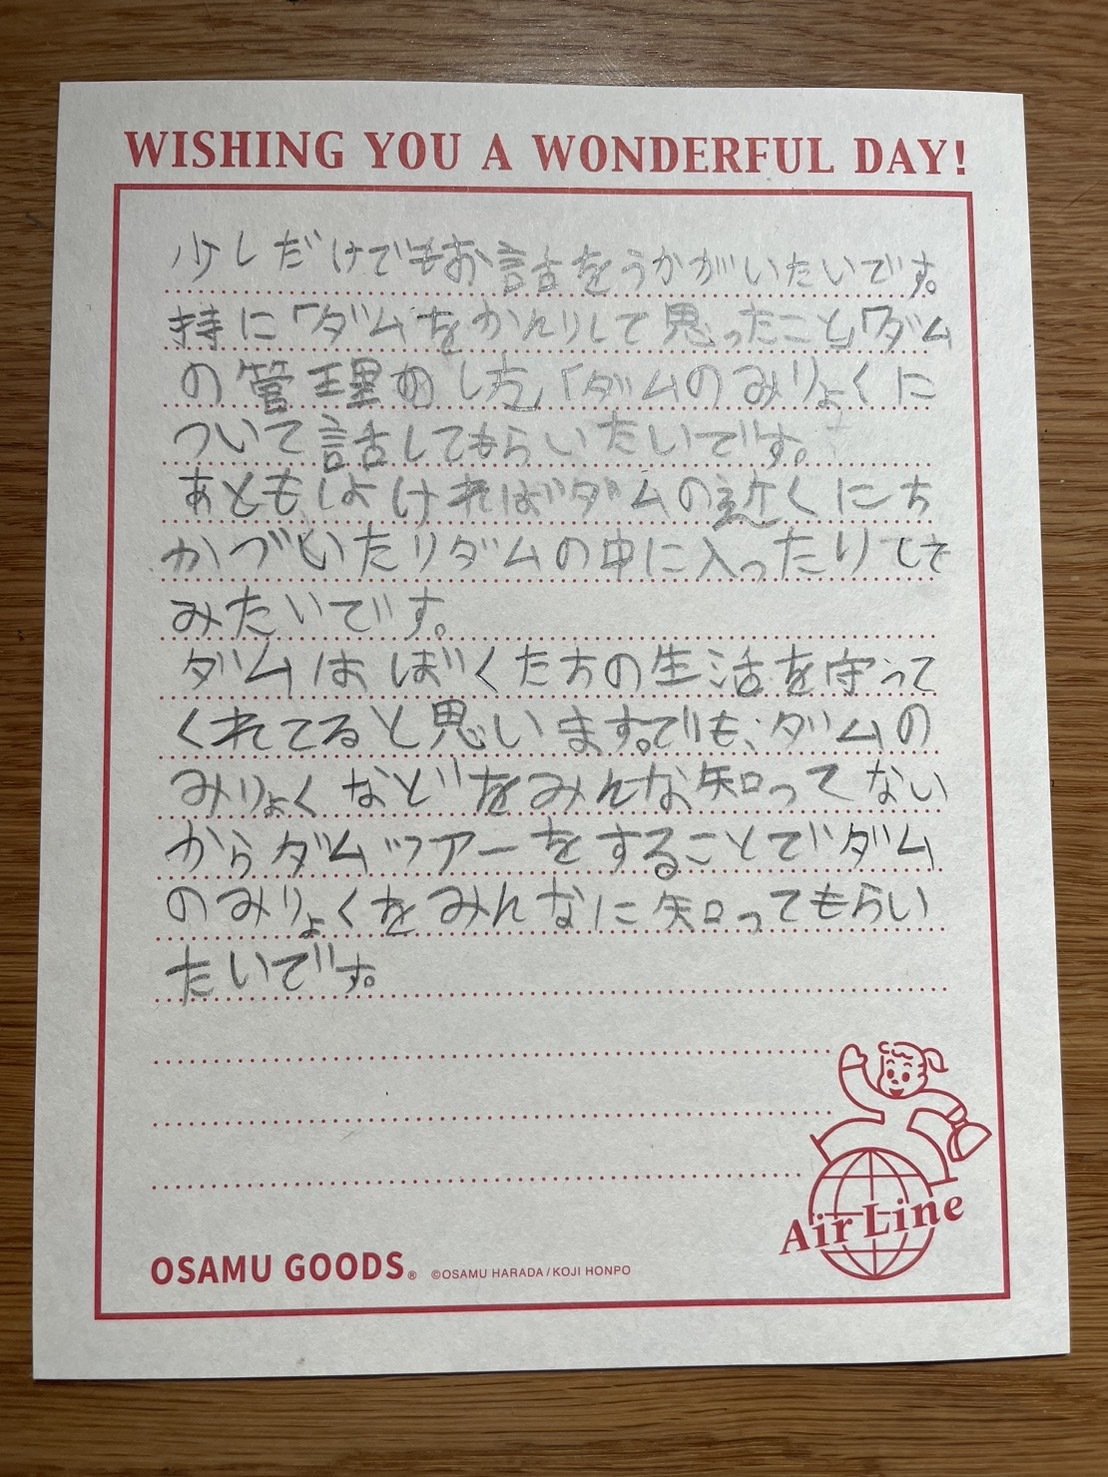 WISHING YOU A WONDERFUL DAY!
少しだけでもお話をうかがいたいです。
持に「ダム」をかんりして思ったこと」「ダム
の管理のし方」「ダムのみりょくに
ついて話してもらいたいです。
あともしよければダムの近くにち
かづいたりダムの中に入ったりしてで
みたいです。
ダムはぼくたちの生活を守って
くれてると思います。でも、ダムの
みりょくなどをみんな知ってない
からダムツアーをすることでダム
のみりょくをみんなに知ってもらい
たいです。
Air Line
OSAMU GOODS® ©OSAMU HARADA / KOJI HONPO